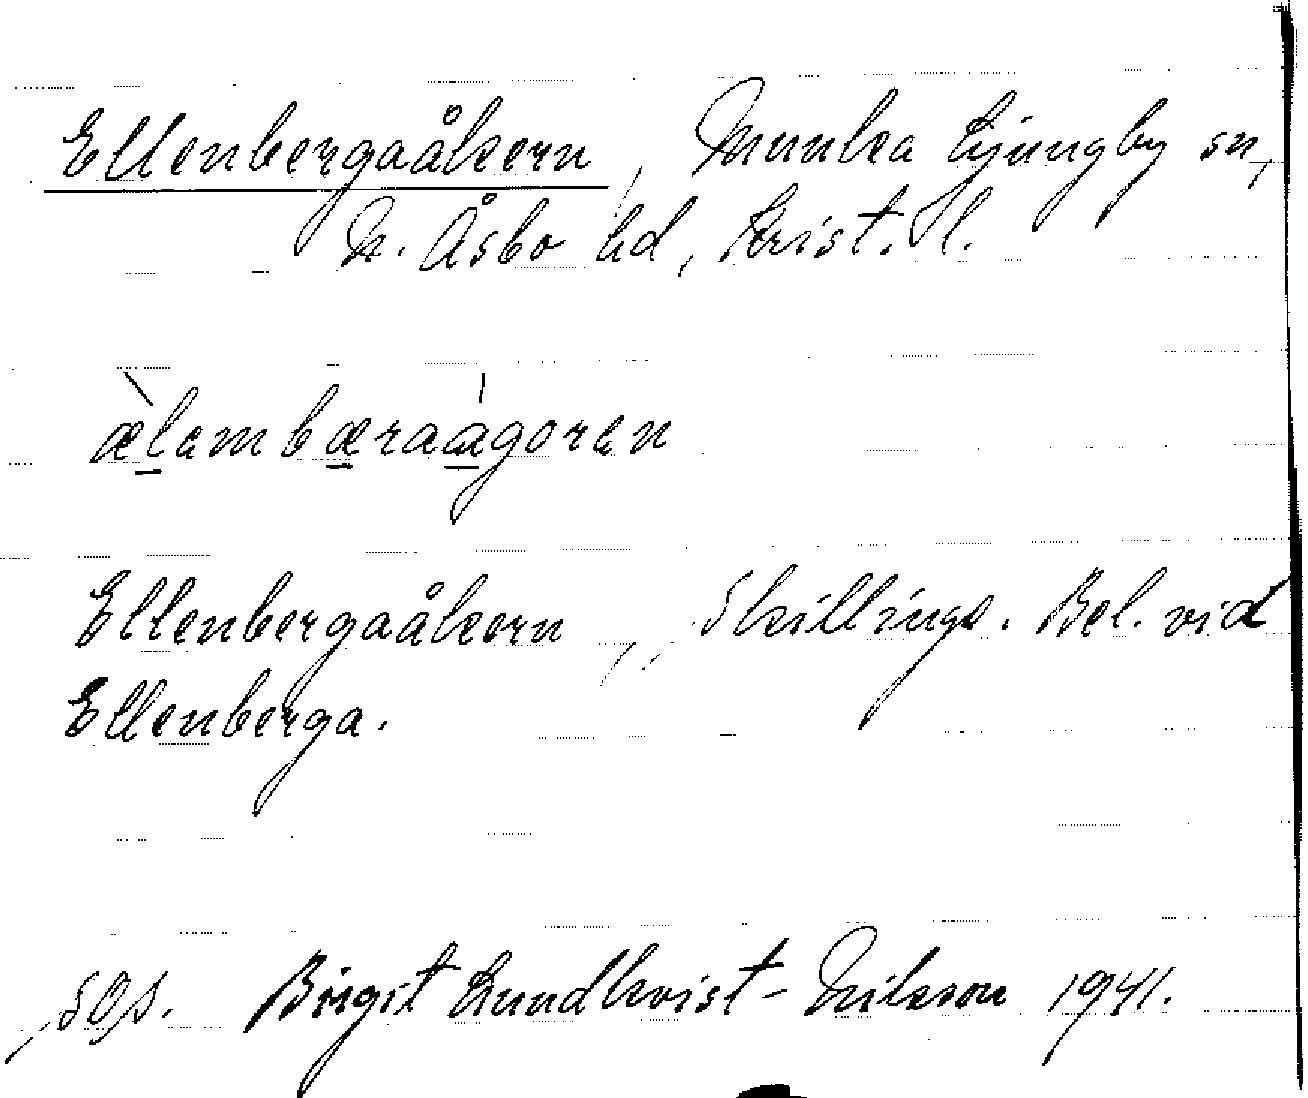 Ellenbergaåkern, Munka Ljungby sn,
N. Åsbo hd, Krist. l.
æ̀lambæraágorɘn
Ellenbergaåkern, Skillinge. Bel. vid
Ellenberga.
Birgit Lundkvist-Nilsson 1941.